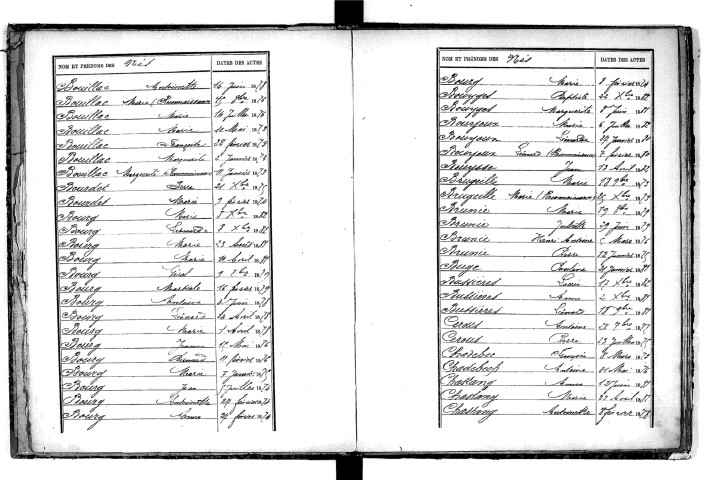 NOM ET PRÉNOMS DES Nés DATES DES ACTES
Bouillac Antoinette 16 Juin 1878
Bouillac Marie (Reconnaissance) 8bre 1876
Bouillac Marie 14 Juillet 1876
Bouillac Marie 10 Mai 1873
Bouillac Françoise 28 février 1873
Bouillac Marguerite Janvier 1876
Bouillac Marguerite Reconnaissance 11 Janvier 1873
Bourdet Pierre 21 Xbre 1875
Bourdet Marie 9 février 1874
Bourg Marie 8 Xbre 1882
Bourg Léonarde 8 Xbre 1882
Bourg Marie 23 Août 1881
Bourg Marie 10 Avril 1881
Bourg 9 7bre 1879
Bourg Martiale 16 février 1879
Bourg Antoine Juin 1878
Bourg Léonard 20 Avril 1878
Bourg Marie 1 Avril 1878
Bourg Jeanne 17 Mai 1876
Bourg Léonard 11 février 1876
Bourg Marie 7 Janvier 1875
Bourg Jean 7 Juillet 1874
Bourg Antoinette 24 février 1874
Bourg Anna 24 février 1874
NOM ET PRÉNOMS DES Nés DATES DES ACTES
Bourg Marie 8 février 1874
Bourgès Baptiste 22 Xbre 1882
Bourgès Marguerite 8 Juin 1881
Bourjoun Marie 6 Juillet 1882
Bourjoun Léonarde 29 Janvier 1880
Bourjoun Léonard (Reconnaissance) 7 février 1880
Bouysse Jean 13 Avril 1882
Brugeille Marie 18 9bre 1873
Brugeille Marie (Reconnaissance) 25 Xbre 1879
Brunie Marie 19 1879
Brunie Juliette 29 Juin 1879
Brunie Henri Antoine Mars 1876
Brunie Pierre 12 Janvier 1875
Buge Pauline 21 Janvier 1881
Bussières Louis 17 Xbre 1882
Bussières Anna 2 Xbre 1881
Bussières Léonard 18 9bre 1881
Cerous Antoine 28 7bre 1877
Cerous Pierre 23 Juillet 1875
Chadebec François 8 Mars 1870
Chadebech Antoine Mai 1876
Chastang Anna 13 Juin 1881
Chastang Marie 22 Avril 1881
Chastang Antoinette 8 février 1878